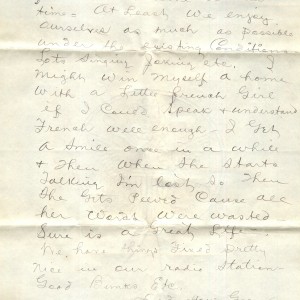 time. At Least we enjoy
ourselves as much as possible
under the existing Conditions
Lots Singing Joking etc. I
Might Win Myself a home
With a Little French Girl
if I Could Speak & understand
French well enough - I Get
a Smile once in a while
& Then When She Starts
Talking I'm lost. So Then
She Gits Peeved Cause all
her Words Were wasted
Sure is a Great Life.
here things fixed pretty
Nice in our radio Station
Good Bunks Etc.